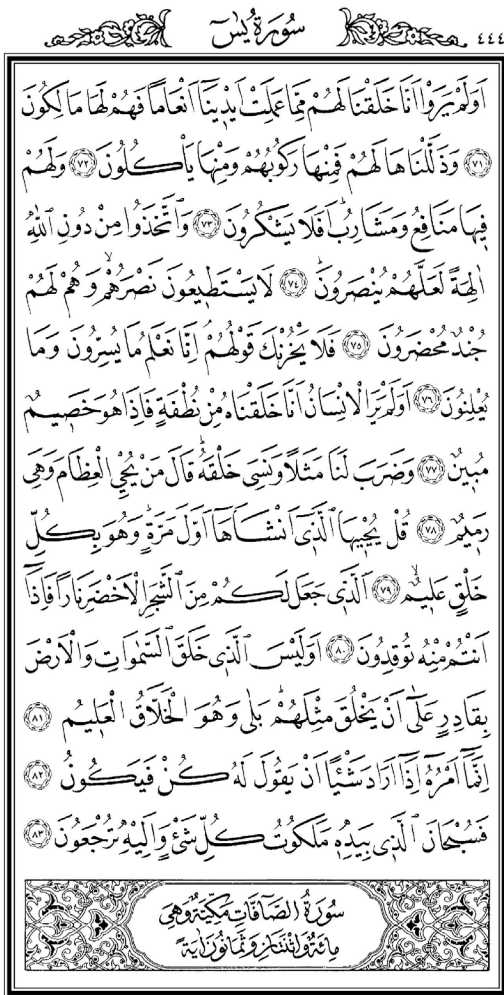 سُورَةُ يٰسٓ ٤٤٤
اَوَلَمْ يَرَوْا اَنَّا خَلَقْنَا لَهُمْ مِمَّا عَمِلَتْ اَيْدٖينَٓا اَنْعَامًا فَهُمْ لَهَا مَالِكُونَ
﴿٧١﴾ وَذَلَّلْنَاهَا لَهُمْ فَمِنْهَا رَكُوبُهُمْ وَمِنْهَا يَأْكُلُونَ ﴿٧٢﴾ وَلَهُمْ
فٖيهَا مَنَافِعُ وَمَشَارِبُۜ اَفَلَا يَشْكُرُونَ ﴿٧٣﴾ وَاتَّخَذُوا مِنْ دُونِ اللّٰهِ
اٰلِهَةً لَعَلَّهُمْ يُنْصَرُونَۜ ﴿٧٤﴾ لَا يَسْتَطٖيعُونَ نَصْرَهُمْۙ وَهُمْ لَهُمْ
جُنْدٌ مُحْضَرُونَ ﴿٧٥﴾ فَلَا يَحْزُنْكَ قَوْلُهُمْۢ اِنَّا نَعْلَمُ مَا يُسِرُّونَ وَمَا
يُعْلِنُونَ ﴿٧٦﴾ اَوَلَمْ يَرَ الْاِنْسَانُ اَنَّا خَلَقْنَاهُ مِنْ نُطْفَةٍ فَاِذَا هُوَ خَصٖيمٌ
مُبٖينٌ ﴿٧٧﴾ وَضَرَبَ لَنَا مَثَلًا وَنَسِيَ خَلْقَهُۜ قَالَ مَنْ يُحْيِ الْعِظَامَ وَهِيَ
رَمٖيمٌ ﴿٧٨﴾ قُلْ يُحْيٖيهَا الَّذٖٓي اَنْشَاَهَٓا اَوَّلَ مَرَّةٍۜ وَهُوَ بِكُلِّ
خَلْقٍ عَلٖيمٌۙ ﴿٧٩﴾ اَلَّذٖي جَعَلَ لَكُمْ مِنَ الشَّجَرِ الْاَخْضَرِ نَارًا فَاِذَٓا
اَنْتُمْ مِنْهُ تُوقِدُونَ ﴿٨٠﴾ اَوَلَيْسَ الَّذٖي خَلَقَ السَّمٰوَاتِ وَالْاَرْضَ
بِقَادِرٍ عَلٰٓى اَنْ يَخْلُقَ مِثْلَهُمْۜ بَلٰى وَهُوَ الْخَلَّاقُ الْعَلٖيمُ ﴿٨١﴾
اِنَّمَٓا اَمْرُهُٓ اِذَٓا اَرَادَ شَيْـًٔا اَنْ يَقُولَ لَهُ كُنْ فَيَكُونُ ﴿٨٢﴾
فَسُبْحَانَ الَّذٖي بِيَدِهٖ مَلَكُوتُ كُلِّ شَيْءٍ وَاِلَيْهِ تُرْجَعُونَ ﴿٨٣﴾
سُورَةُ الصَّٓافَّاتِ مَكِّيَّةٌ وَهِيَ
مِائَةٌ وَاثْنَتَانِ وَثَمَانُونَ اٰيَةً